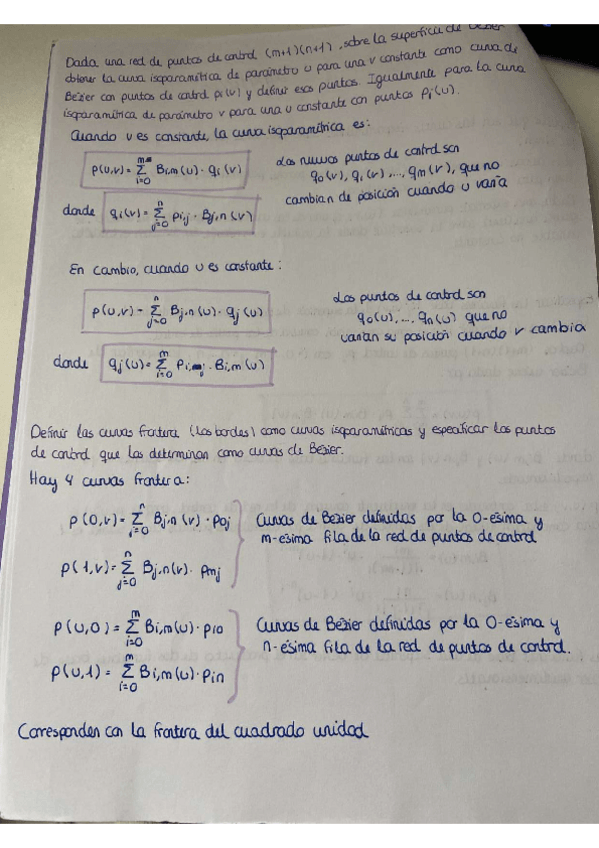 Dada una red de puntos de control (m+1)(n+1), sobre la superficie de Bézier
obtener la curva isoparamétrica de parámetro u para una v constante como curva de
Bézier con puntos de control pi(v) y definir esos puntos. Igualmente para la curva
isoparamétrica de parámetro v para una u constante con puntos pj(u).
Cuando v es constante, la curva isoparamétrica es:
p(u,v) = m Σ i=0 Bi,m(u) · qi(v)
Los nuevos puntos de control son
q0(v), q1(v), ..., qm(v), que no
cambian de posición cuando u varía
donde qi(v) = n Σ j=0 pi,j · Bj,n(v)
En cambio, cuando u es constante:
p(u,v) = n Σ j=0 Bj,n(v) · qj(u)
Los puntos de control son
q0(u), ..., qn(u) que no
varían su posición cuando v cambia
donde qj(u) = m Σ i=0 pi,j · Bi,m(u)
Definir las curvas frontera (los bordes) como curvas isoparamétricas y especificar los puntos
de control que las determinan como curvas de Bézier.
Hay 4 curvas frontera:
p(0,v) = n Σ j=0 Bj,n(v) · p0j
p(1,v) = n Σ j=0 Bj,n(v) · pmj
Curvas de Bézier definidas por la 0-ésima y
m-ésima fila de la red de puntos de control
p(u,0) = m Σ i=0 Bi,m(u) · pi0
p(u,1) = m Σ i=0 Bi,m(u) · pin
Curvas de Bézier definidas por la 0-ésima y
n-ésima fila de la red de puntos de control.
Corresponden con la frontera del cuadrado unidad